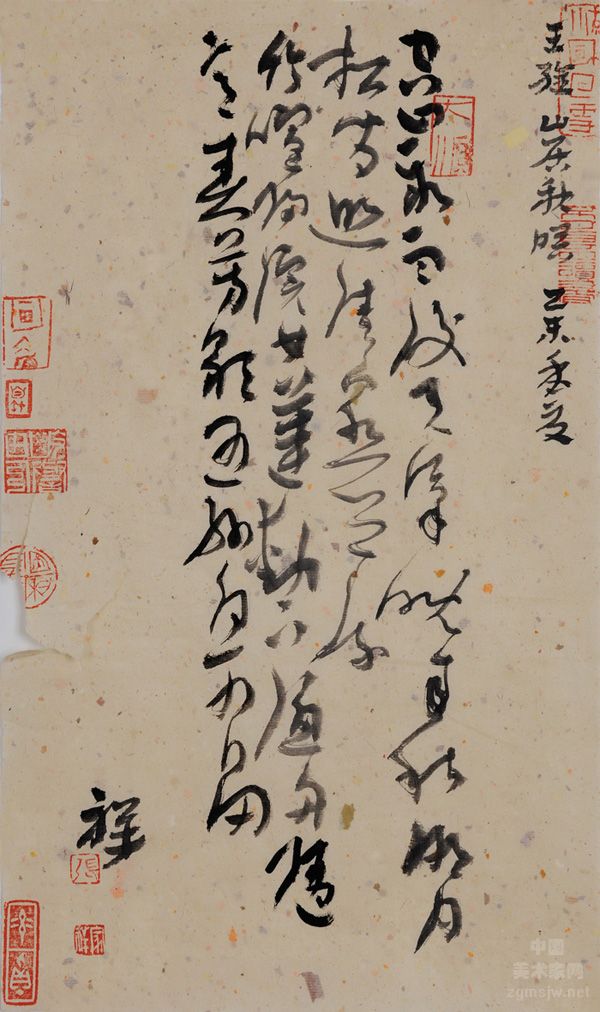 王維 山居秋暝 乙未季夏
空山新雨後天氣晚來秋明月
松間照清泉石上流
竹喧歸浣女蓮動下漁舟隨
意春芳歇王孫自可留
祥
中国
美术家网
zgmsjw.net